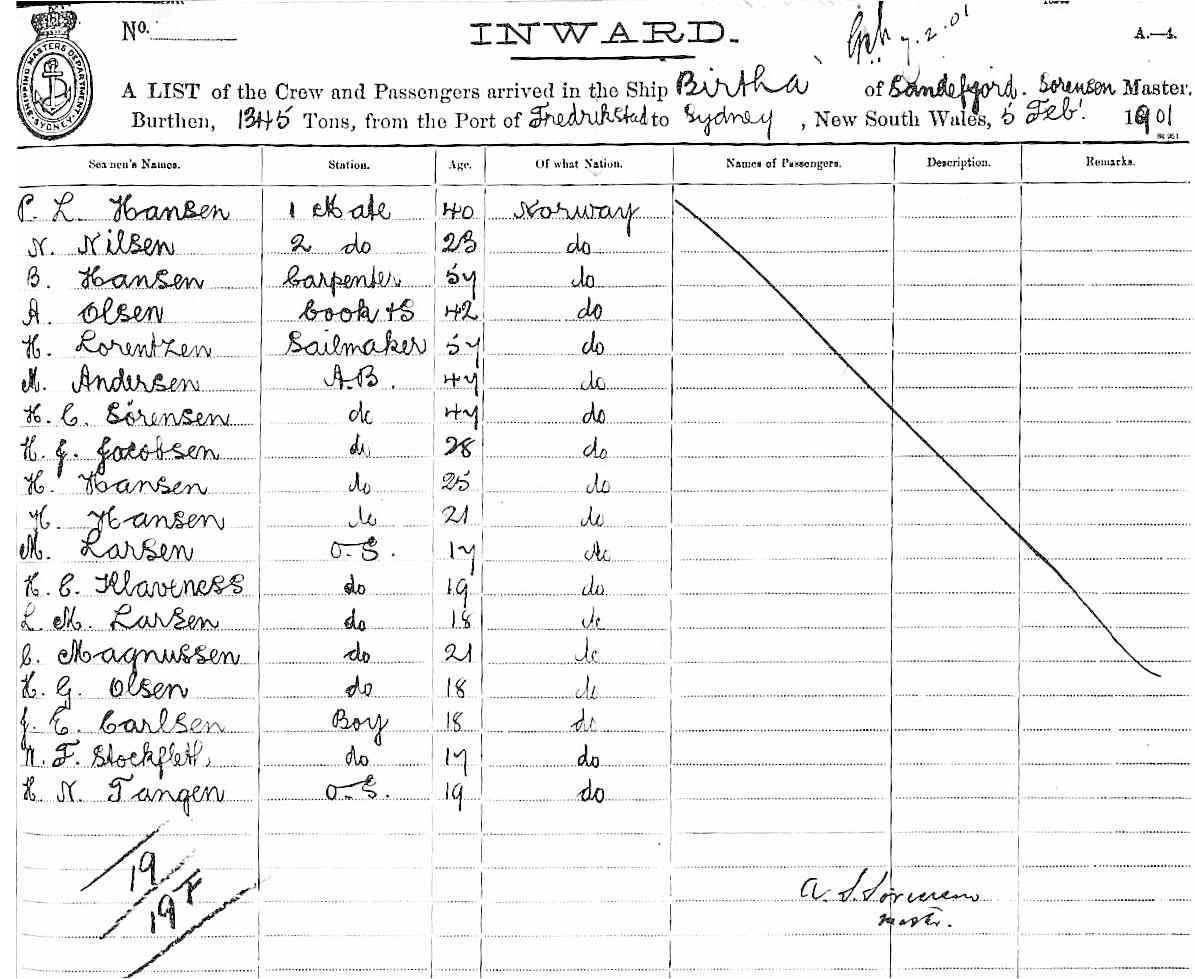 No. INWARD. 7.2.01 A.—4.
SHIPPING MASTERS DEPARTMENT SYDNEY
A LIST of the Crew and Passengers arrived in the Ship Birtha of Sandefjord. Sorensen Master,
Burthen, 1345 Tons, from the Port of Fredrikstad to Sydney, New South Wales, 5 Feb. 1901
Seamen's Names. Station. Age. Of what Nation. Names of Passengers. Description. Remarks.
P. L. Hansen 1 Mate 40 Norway
N. Nilsen 2 do 23 do
B. Hansen Carpenter 57 do
A. Olsen Cook & S 42 do
H. Lorentzen Sailmaker 57 do
M. Andersen A.B. 47 do
H. C. Sörensen do 47 do
H. J. Jacobsen do 28 do
H. Hansen do 25 do
H. Hansen do 21 do
M. Larsen O.S. 17 do
H. C. Klaveness do 19 do
L. M. Larsen do 18 do
C. Magnussen do 21 do
H. G. Olsen do 18 do
J. E. Carlsen Boy 18 do
N. F. Stockfleth do 17 do
H. N. Tangen O.S. 19 do
19
19 F
A. S. Sörensen
master.